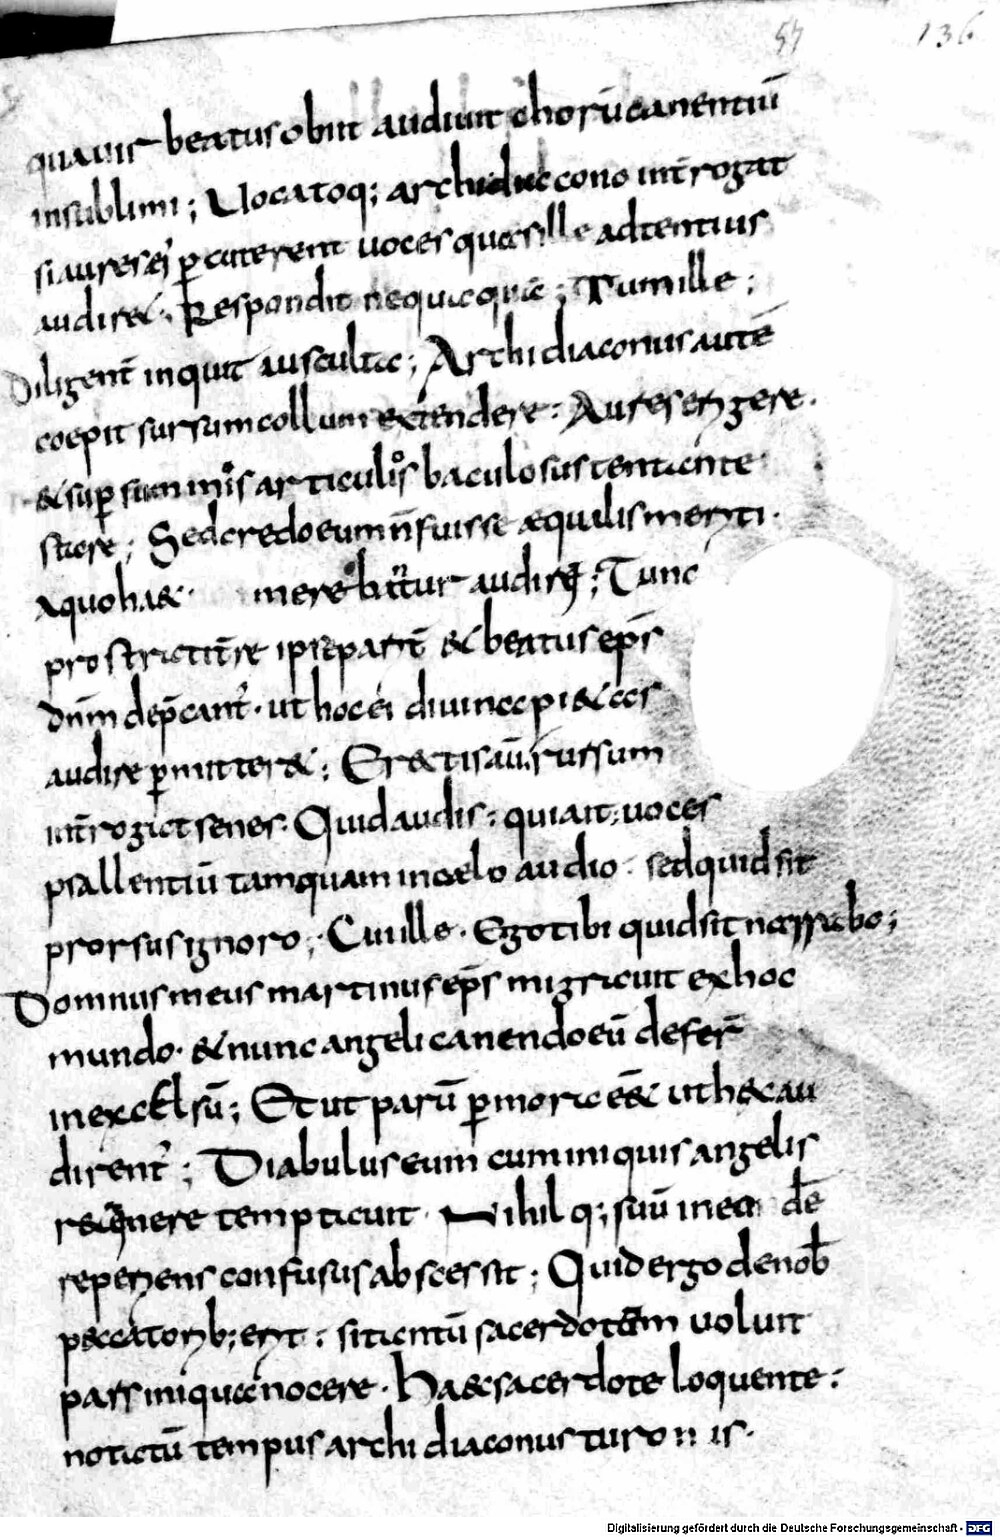 54 136
qua uir beatus obiit audiuit chorū canentiū
insublimi; Uocatoq; archidiacono int̄rogat
si aures ei' ꝑcuterent uoces quas ille adtentius
audir&. Respondit nequaquā; Tum ille;
Diligent̄ inquit ausculta; Archidiaconus autē
coepit sursum collum extendere: Aures erigere.
& suꝑ summis articulis baculo sustentante
stare; Sed credo eum n̄ fuisse aequalis meriti.
a quo ha& merebatur audire; Tunc
prostrati t̄re ipse parit̄ & beatus ep̄s
dn̄m dep̄cant'. ut hoc ei diuina pi&as
audire ꝑmitter&; Er&tis aū rursum
int̄rogat senes. Quid audis: qui ait; uoces
psallentiū tamquam in caelo audio. sed quid sit
prorsus ignoro; Cui ille. Ego tibi quid sit narrabo;
Domnus meus martinus ep̄s migrauit ex hoc
mundo. & nunc angeli canendo eū defer̄
in excelsū; Et ut parū ꝑ mora ess& ut haec au
dirent'; Diabulus eum cum iniquis angelis
r&enere temptauit. Nihilq; suū in ea de
reperiens confusus abscessit; Quid ergo de nob̄
peccatorib; erit: si tantū sacerdotem uoluit
pars iniqua nocere. Haec sacerdote loquente:
notatū tempus archidiaconus turonis.
Digitalisierung gefördert durch die Deutsche Forschungsgemeinschaft - DFG